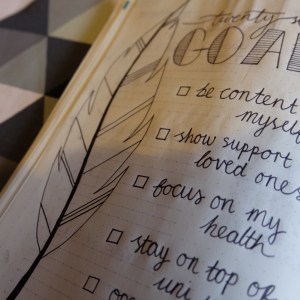 GOA
be content
myself
show support
loved ones
focus on my
health
stay on top of
uni